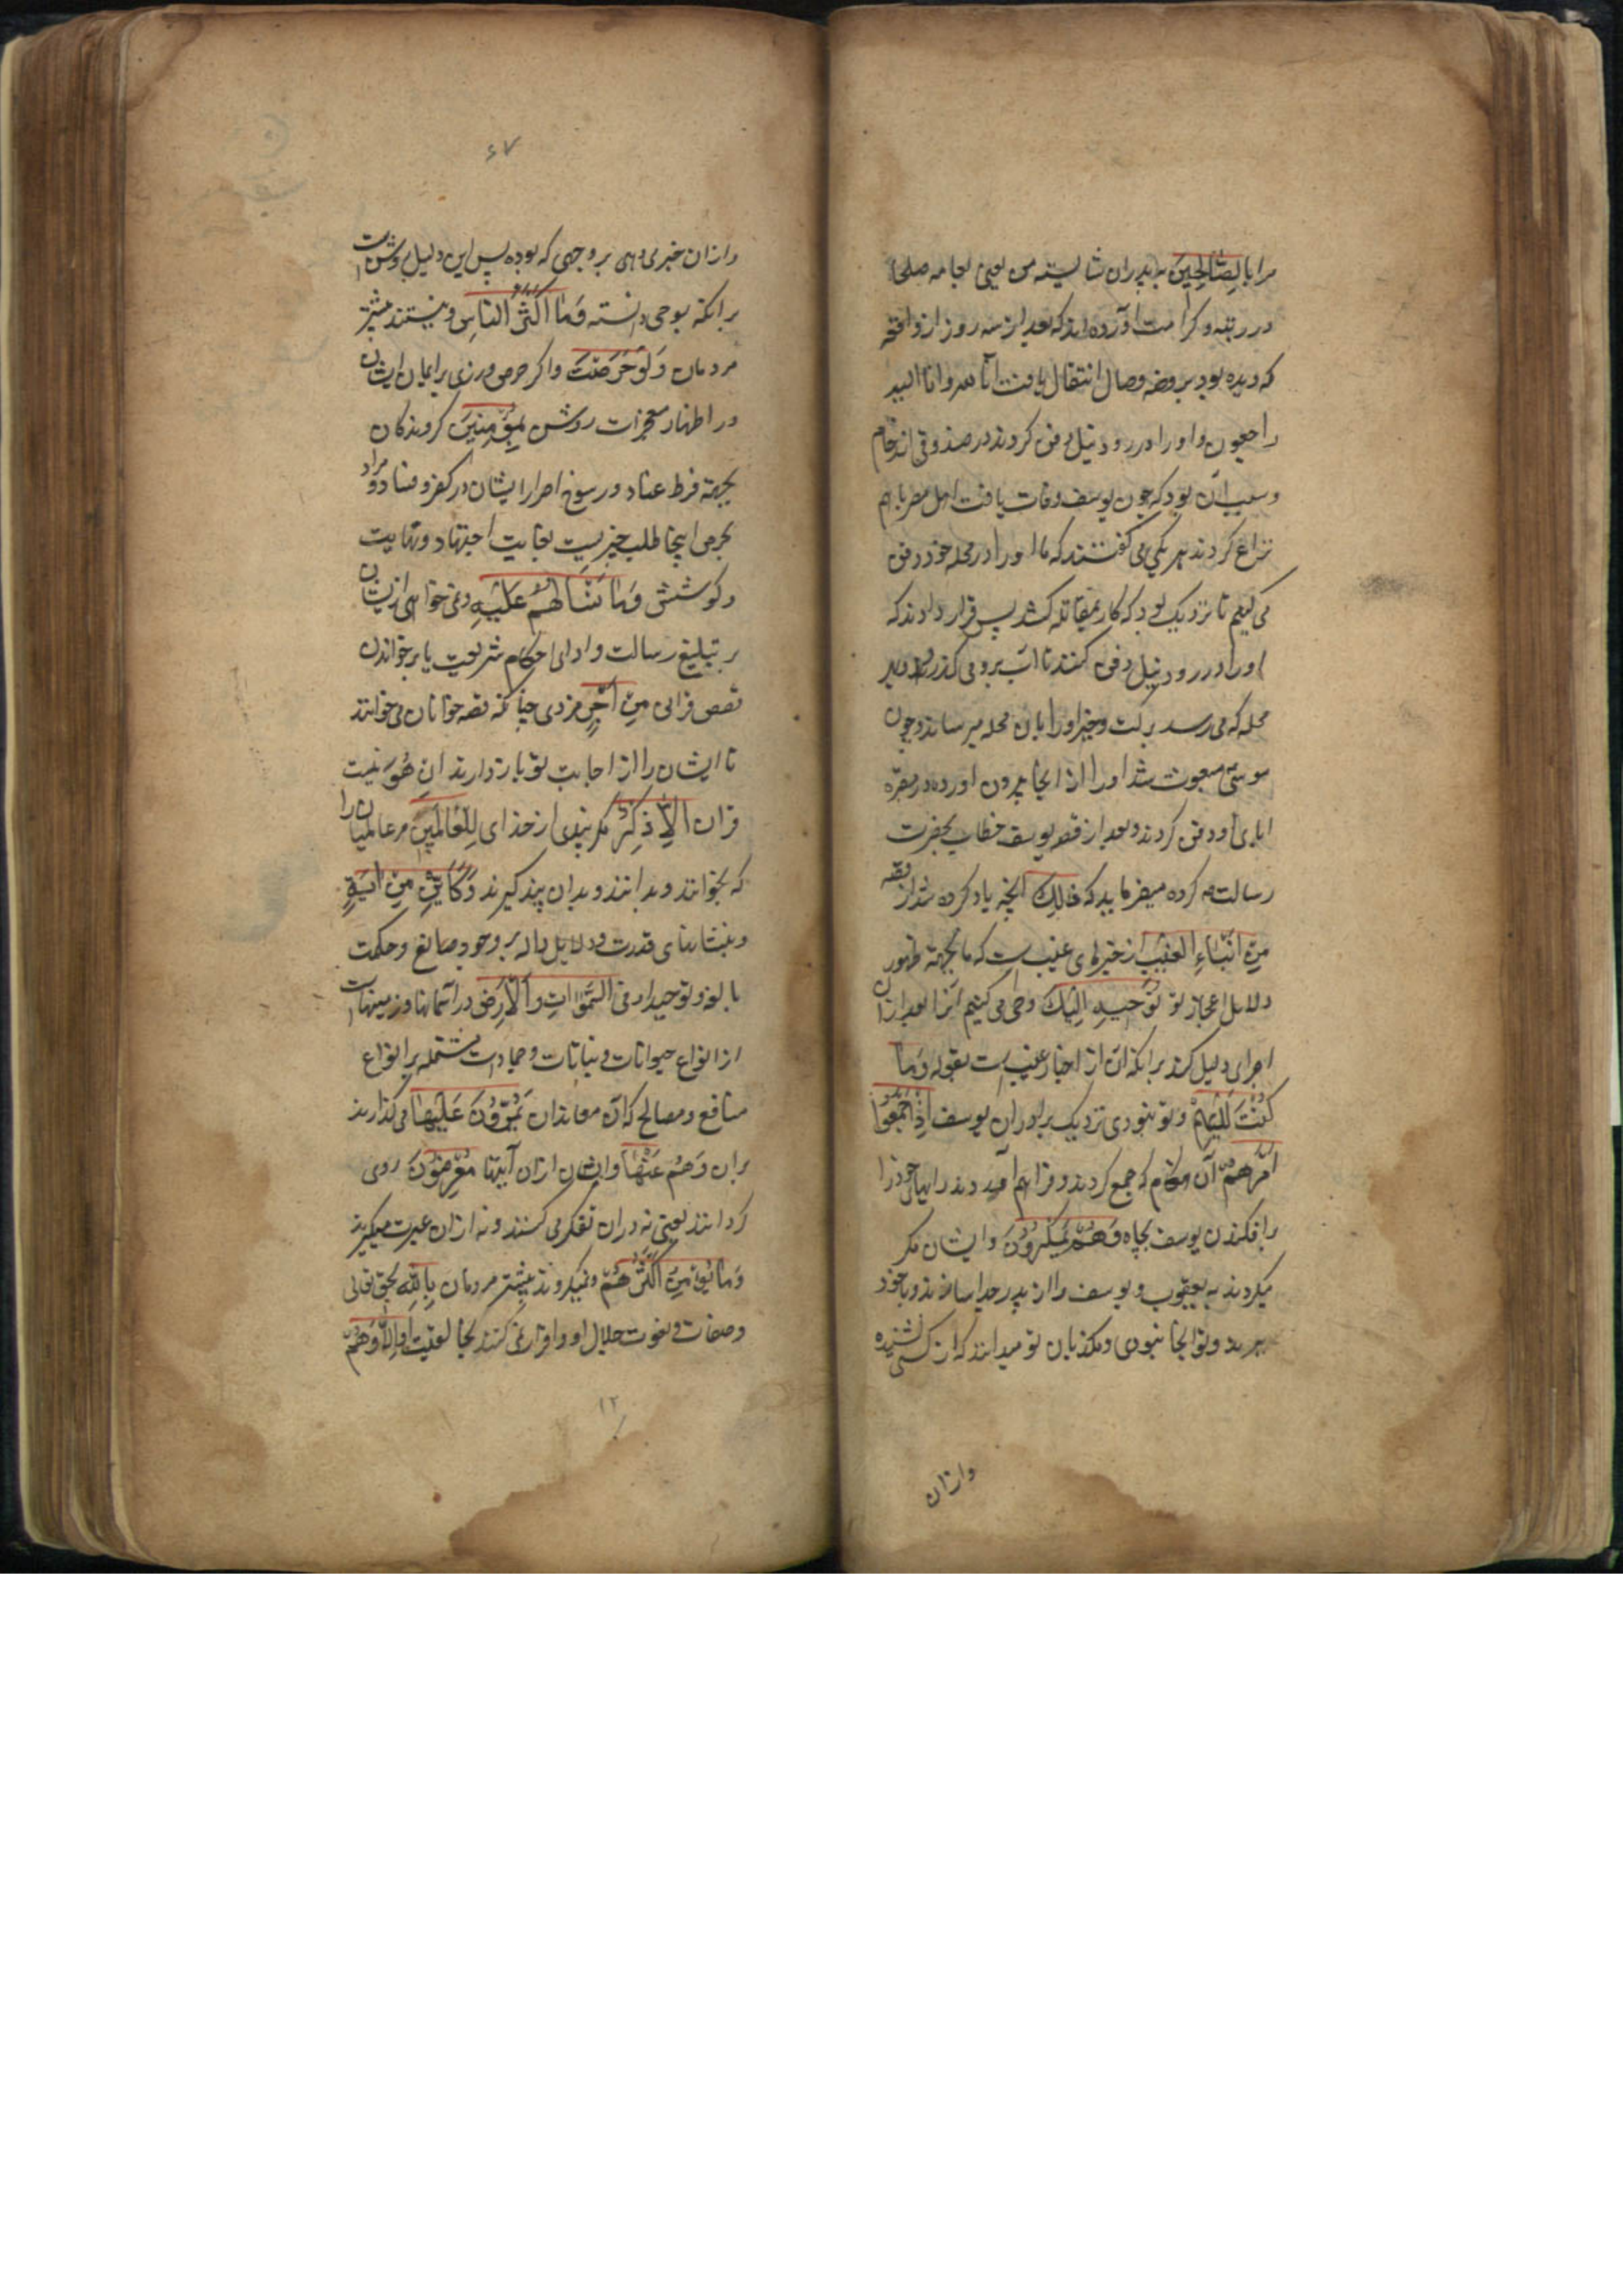 مرا بالصّالِحینَ به پدران شایسته من یعنی بعامه صلحا
در رتبه و کرامت آورده اند که بعد از سه روز ازو واقعه
که دیده بود بروضه وصال انتقال یافت انا لله وانا الیه
راجعون و او را در رود نیل دفن کردند در صندوقی از رخام
و سبب آن بود که چون یوسف وفات یافت اهل مصر باهم
نزاع کردند هر یکی می گفتند که ما او را در محله خود دفن
می کنیم تا نزدیک بود که کار بمقاتله کشد پس قرار دادند که
او را در رود نیل دفن کنند تا آب برو می گذرد و بهر
محله که می رسد برکت و خیر او را بان محله میرساند و چون
موسی مبعوث شد او را از انجا بیرون اورده در مقبره
ابای او دفن کردند و بعد از قصه یوسف خطاب بحضرت
رسالت کرده میفرماید که ذالِكَ انچه یاد کرده شد از قصه
مِنْ اَنْبَاءِ الْغَیْبِ از خبرهای غیب ست که ما بجهة ظهور
دلایل اعجاز تو نُوْحِیهِ اِلَیْكَ وحی می کنیم انرا بعد ازان
اجرای دلیل کرد برانکه آن از اخبار غیب ست بقوله وَمَا
کُنْتَ لَدَیْهِمْ و تو نبودی نزدیک برادران یوسف اِذْ اَجْمَعُوا
اَمْرَهُمْ آن هنگام که جمع کردند و فراهم آوردند رایهای خود را
برافکندن یوسف بچاه وَهُمْ یَمْکُرُوْنَ و ایشان مکر
میکردند به یعقوب و یوسف را از پدر جدا ساختند و با خود
ببردند و تو انجا نبودی و مکذبان تو میدانند که از کسی نشنیده
وازان
٤٧
وازان خبری دهی بر وجهی که بوده پس این دلیل روشن است
برانکه بوحی دانسته وَمَا اَکْثَرُ النَّاسِ و نیستند بیشتر
مردمان وَلَوْ حَرَصْتَ و اگر حرص ورزی بر ایمان ایشان
و در اظهار معجزات روشن بِمُؤْمِنِیْنَ گروندگان
بجهة فرط عناد و رسوخ اصرار ایشان در کفر و فساد و مراد
بحرص اینجا طلب چیزیست بغایت اجتهاد و نهایت
و کوشش وَمَا تَسْـَٔلُهُمْ عَلَیْهِ و نمی خواهی ازیشان
بر تبلیغ رسالت و ادای احکام شریعت یا بر خواندن
قصص قرانی مِنْ اَجْرٍ مزدی چنانکه قصه خوانان می خواهند
تا ایشان را از اجابت تو بازدارند اِنْ هُوَ نیست
قران اِلَّا ذِکْرٌ مگر پندی از خدای لِلْعٰالَمِیْنَ مر عالمیان را
که بخوانند و بدانند و بدان پند گیرند وَکَاَیِّنْ مِنْ آیَةٍ
و بنشانهای قدرت و دلایل داله بر وجود صانع و حکمت
بالغه و توحید او فی السَّمٰوَاتِ وَالْاَرْضِ در آسمانها و زمینهاست
از انواع حیوانات و نباتات و جمادات مشتمله بر انواع
منافع و مصالح که آن معاندان یَمُرُّوْنَ عَلَیْهَا می گذارند
بران وَهُمْ عَنْهَا و ایشان ازان آیتها مُعْرِضُوْنَ روی
گردانند یعنی نه دران تفکر می کنند و نه ازان عبرت میگیرند
وَمَا یُؤْمِنُ اَکْثَرُهُمْ و نمیگروند بیشتر مردمان بِاللّٰهِ بحق تعالی
و صفات و نعوت جلال او و اقرار نمی کنند اِلَّا وَهُمْ
١٢